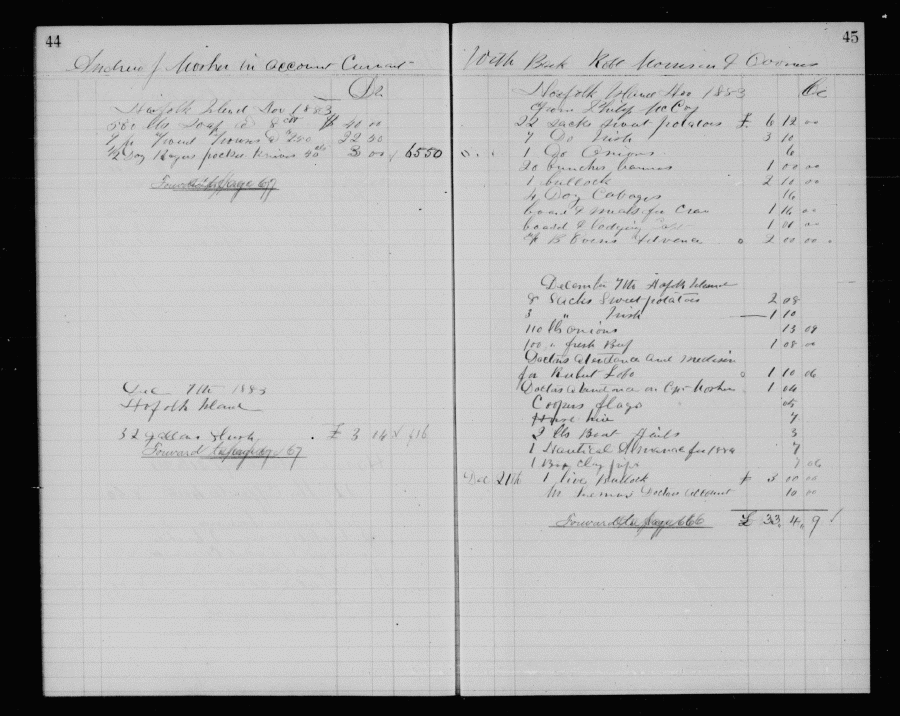 44
Andrew J Mosher in account Current
Dr
Norfolk Island Nov 1883
500 lbs Soap @ 8 cts $ 40 00
22 50
1/2 Doz pocket Knives 3 00 6550
Forward page 67
Dec 7th 1883
Norfolk Island
32 gallons Slush £ 3 14 616
Forward to page 67
45
With Bark Robt Morrison & Owners
Norfolk Island Nov 1883 Cr
From Philip McCoy
22 sacks sweet potatoes £ 6 12 00
7 Do Irish 3 10
1 Do Onions 6
20 bunches bananas 1 00 00
1 bullock 2 10 00
4 Doz Cabages 16
board & meals for Crew 1 16 00
board & lodging 1 01 00
B Evens Advance 2 00 00
December 7th Norfolk Island
8 Sacks Sweet potatoes 2 08
3 " Irish 1 10
110 lb onions 13 09
100 " fresh Beef 1 08 00
Doctors Atentance and medisin
for 1 10 06
Doctors Atentance on Cpt Mosher 1 04
Coopers flags
7
2 lbs Boat Nails 3
1 Nautical Almanac for 1884 7
1 Box clay pipes 06
Dec 21th 1 live Bullock 3 00 00
Doctors account 10 00
Forward to page 66 £ 33, 4, 9